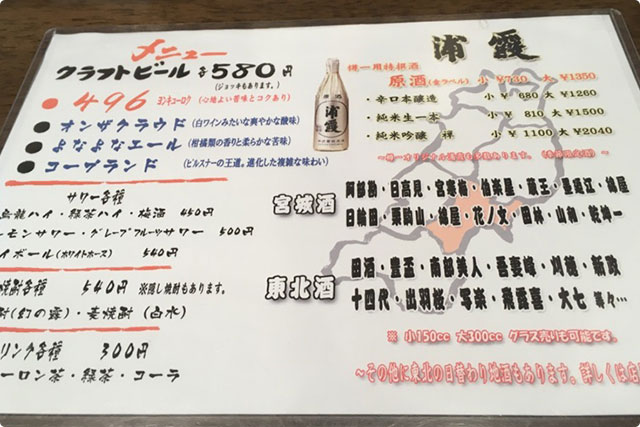 メニュー
クラフトビール 各580円
(ジョッキもあります。)
● 496 ヨンキューロク (心地よい苦味とコクあり)
● オンザクラウド (白ワインみたいな爽やかな酸味)
● よなよなエール (柑橘類の香りと柔らかな苦味)
● コープランド (ピルスナーの王道。進化した複雑な味わい)
サワー各種
烏龍ハイ・緑茶ハイ・梅酒 450円
モンサワー・グレープフルーツサワー 500円
イボール(ホワイトホース) 540円
焼酎各種 540円 ※隠し焼酎もあります。
酎(幻の露)・麦焼酎(白水)
リンク各種 300円
ーロン茶・緑茶・コーラ
浦霞
樽一用特撰酒
原酒(金ラベル) 小 ¥730 大 ¥1350
・辛口本醸造 小 ¥ 680 大 ¥1260
・純米生一本 小 ¥ 810 大 ¥1500
・純米吟醸 禅 小 ¥ 1100 大 ¥2040
原酒
浦霞
宮城酒
阿部勘・日高見・宮寒梅・伯楽星・蔵王・墨廼江・綿屋
日輪田・栗駒山・萩の鶴・花ノ文・田林・山和・乾坤一
東北酒
田酒・豊盃・南部美人・吾妻峰・刈穂・新政
十四代・出羽桜・写楽・飛露喜・大七 等々…
※ 小150cc 大300cc グラス売りも可能です。
～その他に東北の日替わり地酒もあります。詳しくは店